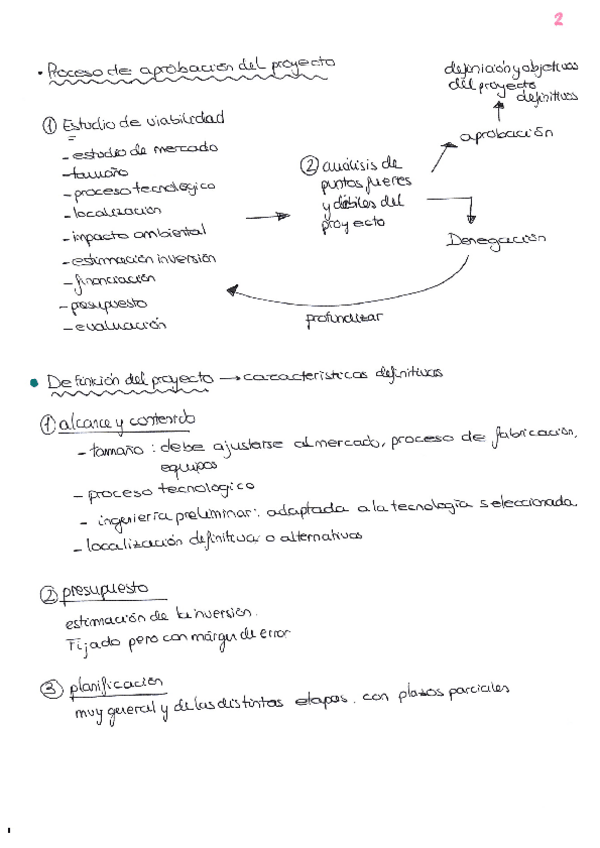 2
• Proceso de aprobación del proyecto
① Estudio de viabilidad
- estudio de mercado
- tamaño
- proceso tecnológico
- localización
- impacto ambiental
- estimación inversión
- financiación
- presupuesto
- evaluación
② análisis de
puntos fueres
y débiles del
proyecto
aprobación
definición y objetivos
del proyecto
definitivos
Denegación
profundizar
• Definición del proyecto → características definitivas
① alcance y contenido
- tamaño : debe ajustarse al mercado, proceso de fabricación,
equipos
- proceso tecnológico
- ingeniería preliminar : adaptada a la tecnología seleccionada.
- localización definitiva o alternativas
② presupuesto
estimación de la inversión.
Fijado pero con márgen de error
③ planificación
muy general y de las distintas etapas. con plazos parciales